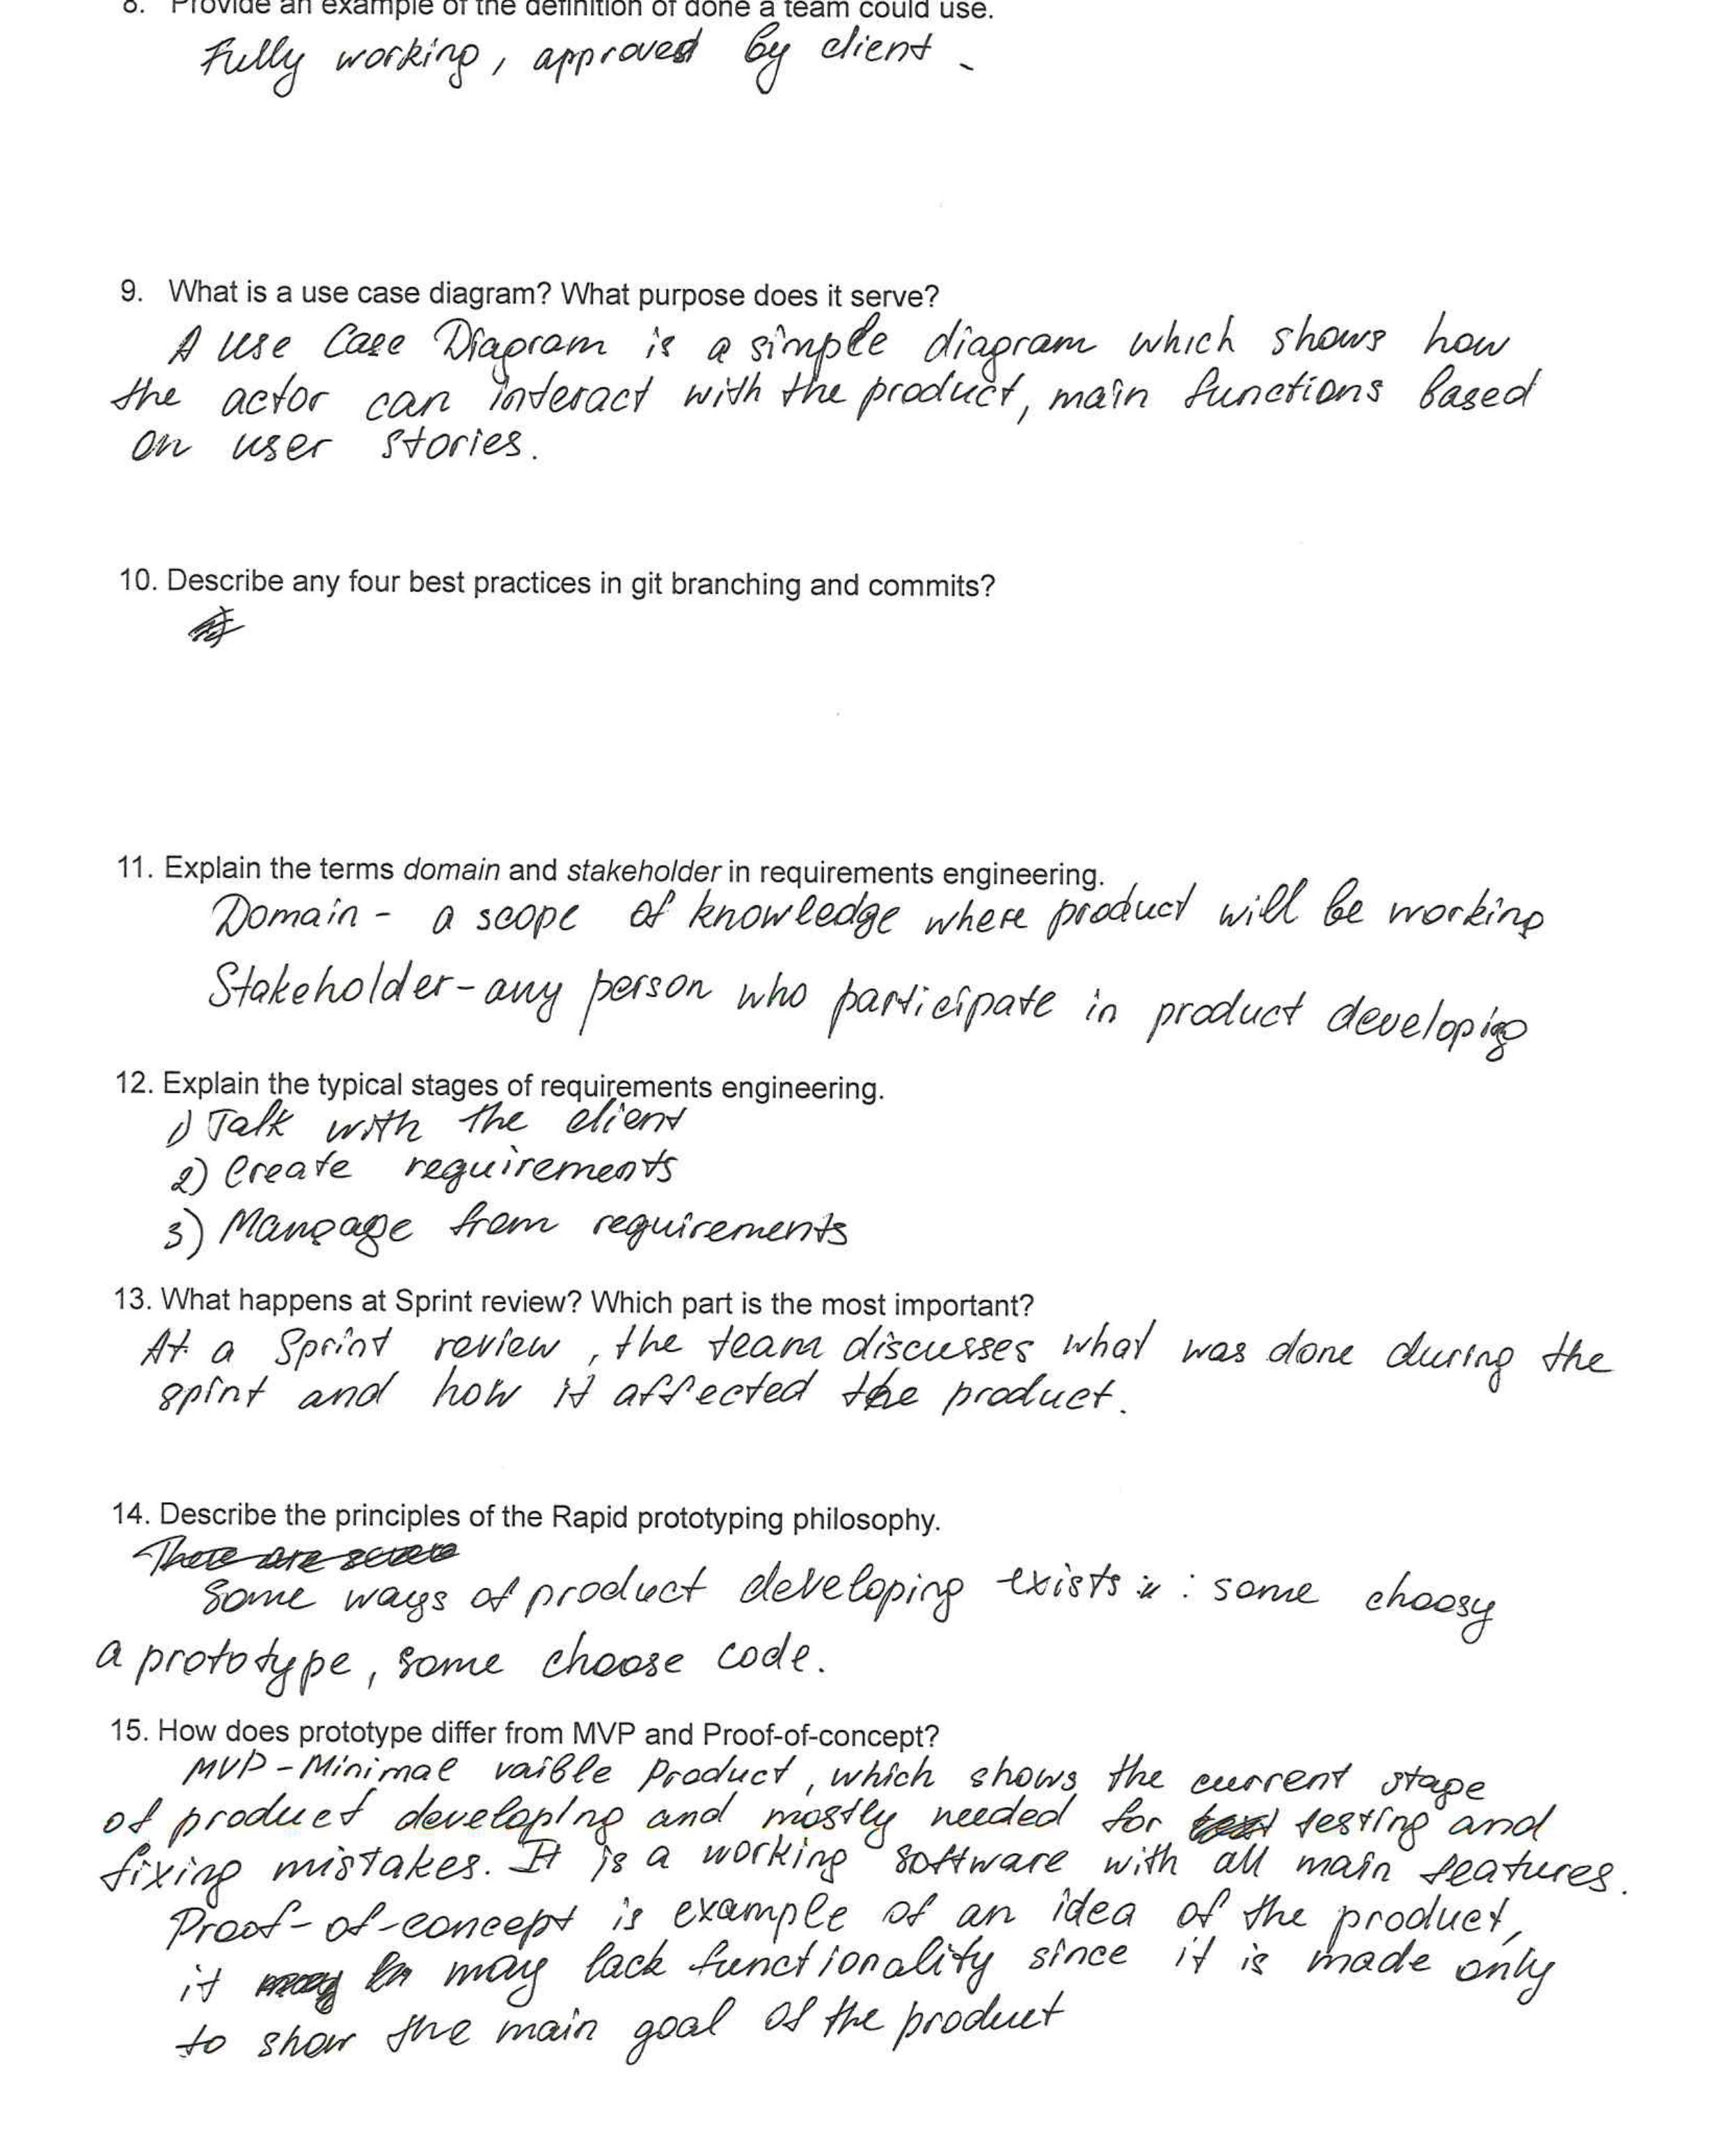 8. Provide an example of the definition of done a team could use.
Fully working, approved by client.
9. What is a use case diagram? What purpose does it serve?
A Use Case Diagram is a simple diagram which shows how
the actor can interact with the product, main functions based
on user stories.
10. Describe any four best practices in git branching and commits?
11. Explain the terms domain and stakeholder in requirements engineering.
Domain - a scope of knowledge where product will be working
Stakeholder - any person who participate in product developing
12. Explain the typical stages of requirements engineering.
1) Talk with the client
2) Create requirements
3) Manage from requirements
13. What happens at Sprint review? Which part is the most important?
At a Sprint review, the team discusses what was done during the
spint and how it affected the product.
14. Describe the principles of the Rapid prototyping philosophy.
There are
Some ways of product developing exists : some choosy
a prototype, some choose code.
15. How does prototype differ from MVP and Proof-of-concept?
MVP - Minimal vaible Product, which shows the current stage
of product developing and mostly needed for testing and
fixing mistakes. It is a working software with all main features.
Proof-of-concept is example of an idea of the product,
it may lack functionality since it is made only
to show the main goal of the product